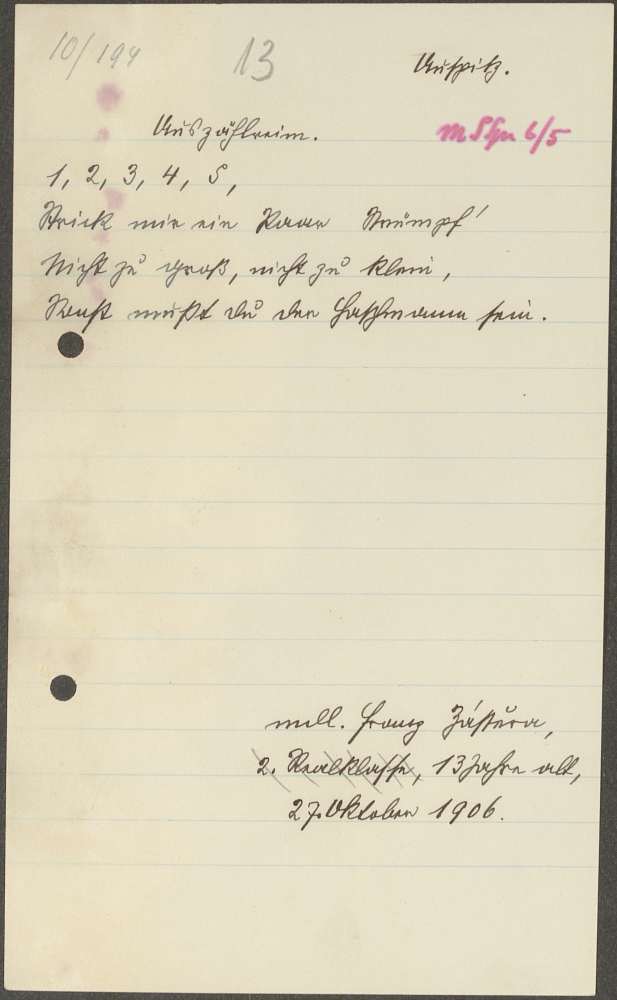 10/194
13
Auspitz.
Auszählreim.
6/5
1, 2, 3, 4, 5,
Strick mir ein Paar Strümpf'
Nicht zu groß, nicht zu klein,
Sonst mußt du der Haschmann sein.
mell. Franz Zástěra,
2. Realklasse, 13 Jahre alt,
27. Oktober 1906.